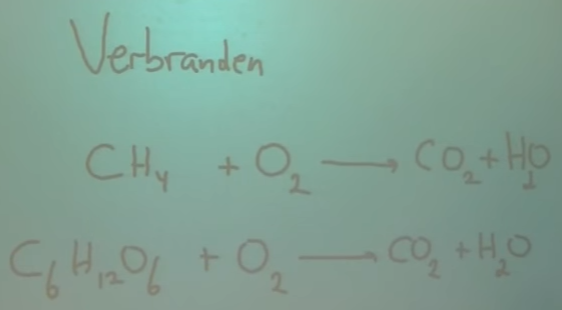 Verbranden
CH₄ + O₂ → CO₂ + H₂O
C₆H₁₂O₆ + O₂ → CO₂ + H₂O